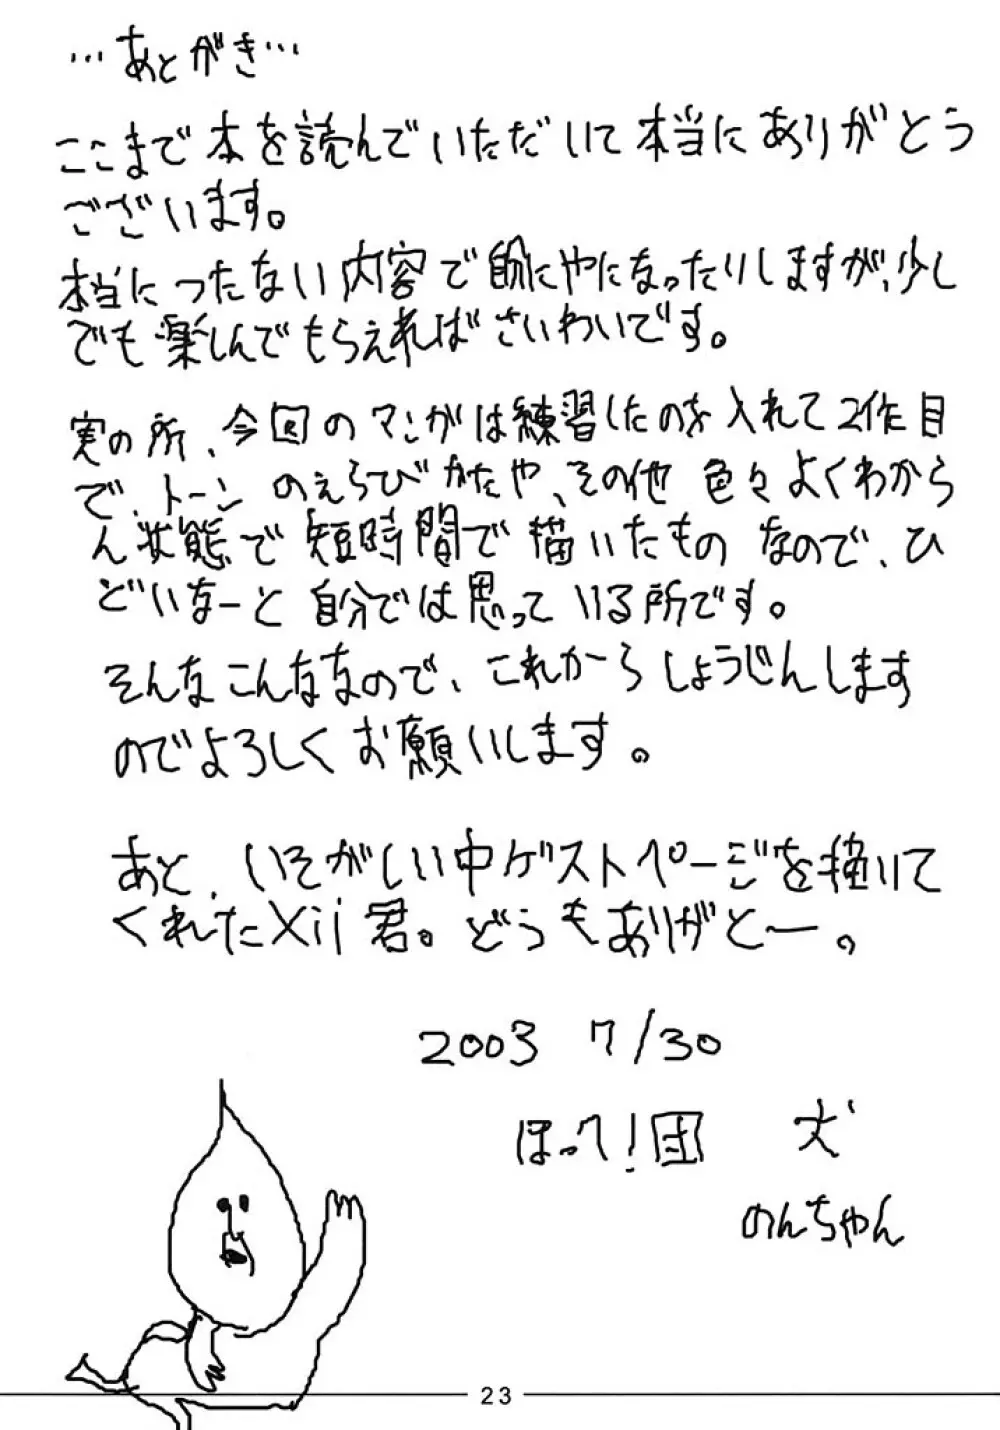 …あとがき…
ここまで本を読んでいただいて本当にありがとう
ございます。
本当につたない内容で
やになったりしますが、少し
でも楽しんでもらえればさいわいです。
実の所、今回のマンガは練習したのを入れて2作目
で、トーンのえらびかたや、その他 色々よくわから
ん状態で短時間で描いたものなので、ひ
どいなーと自分では思っている所です。
そんなこんななので、これからしょうじんします
のでよろしくお願いします。
あと、いそがしい中ゲストページを描いて
くれたXii君。どうもありがとー。
2003 7/30
ほって!団 犬
のんちゃん
23